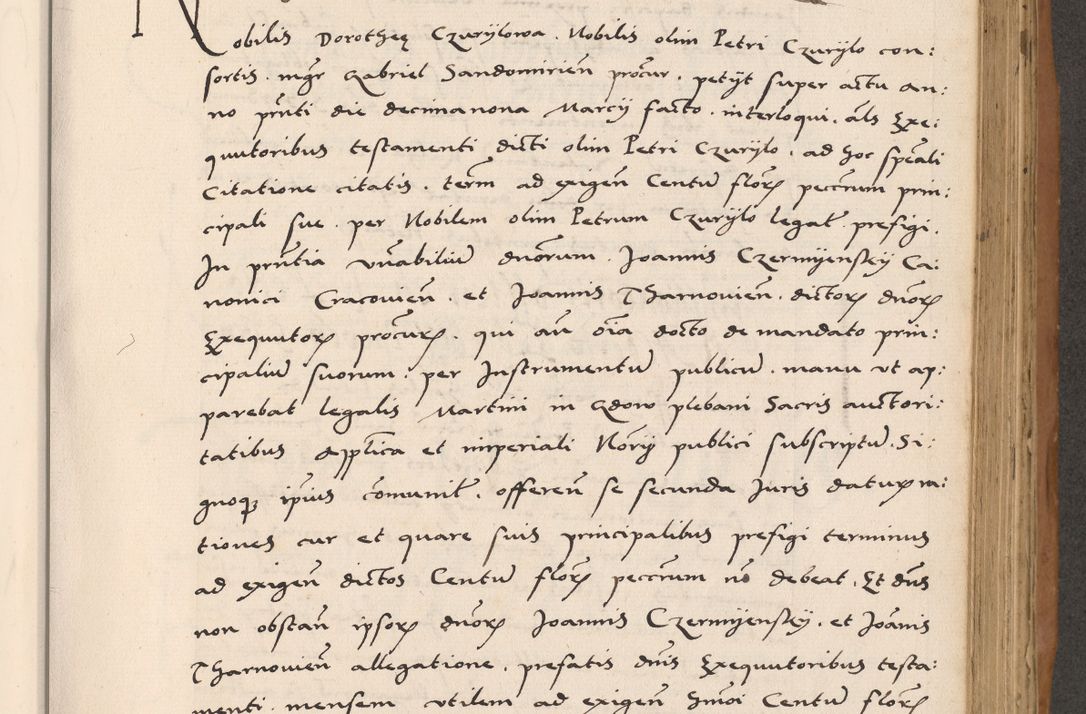 Nobilis Dorotheę Czurylowa . Nobilis olim Petri Czurylo con:
sortis . mgr Gabriel Sandomirień procur . petyt super actu an:
no prnti die decima nona Marcij facto . interloqui . als Exe:
quutoribus testamenti dicti olim Petri Czurylo . ad hoc speali
Citatione citatis . term ad exigeń Centū florꝝ peccrum prin:
cipali sue . per Nobilem olim Petrum Czurylo legat . prefigi .
In prntia vnabiliū dnorum . Joannis Czermyensky Ca:
nonici Cracovień . et Joannis Tharnovień . dictorꝝ dnorꝝ
Exequutorꝝ procurꝝ . qui aū oia docto de mandato prin:
cipaliū suorum . per Instrumentū publicū . manu vt ap:
parebat legalis Martini in Gdow plebani Sacris auctori:
tatibus apptica et imperiali Norij publici subscriptū . Si:
gnoqꝫ ipius comunit . offereń se secunda Juris daturꝝ ra:
tiones cur et quare suis principalibus prefigi terminus
ad exigeń dictos Centū florꝝ peccrum nō debeat . Et dns
non obstań ipsorꝝ dnorꝝ Joannis Czermyensky . et Joānis
Tharnovień allegatione . prefatis dnis Exequutoribus testa:
menti . mensem vtilem ad exigeń hmoi Centū florꝝ